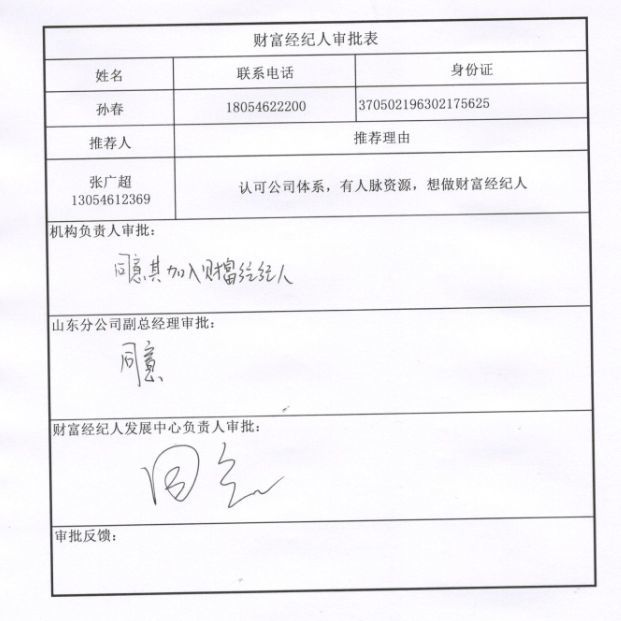 财富经纪人审批表
姓名 联系电话 身份证
孙春 18054622200 370502196302175625
推荐人 推荐理由
张广超
13054612369
认可公司体系，有人脉资源，想做财富经纪人
机构负责人审批：
同意其加入财富经纪人
山东分公司副总经理审批：
同意
财富经纪人发展中心负责人审批：
同意
审批反馈：